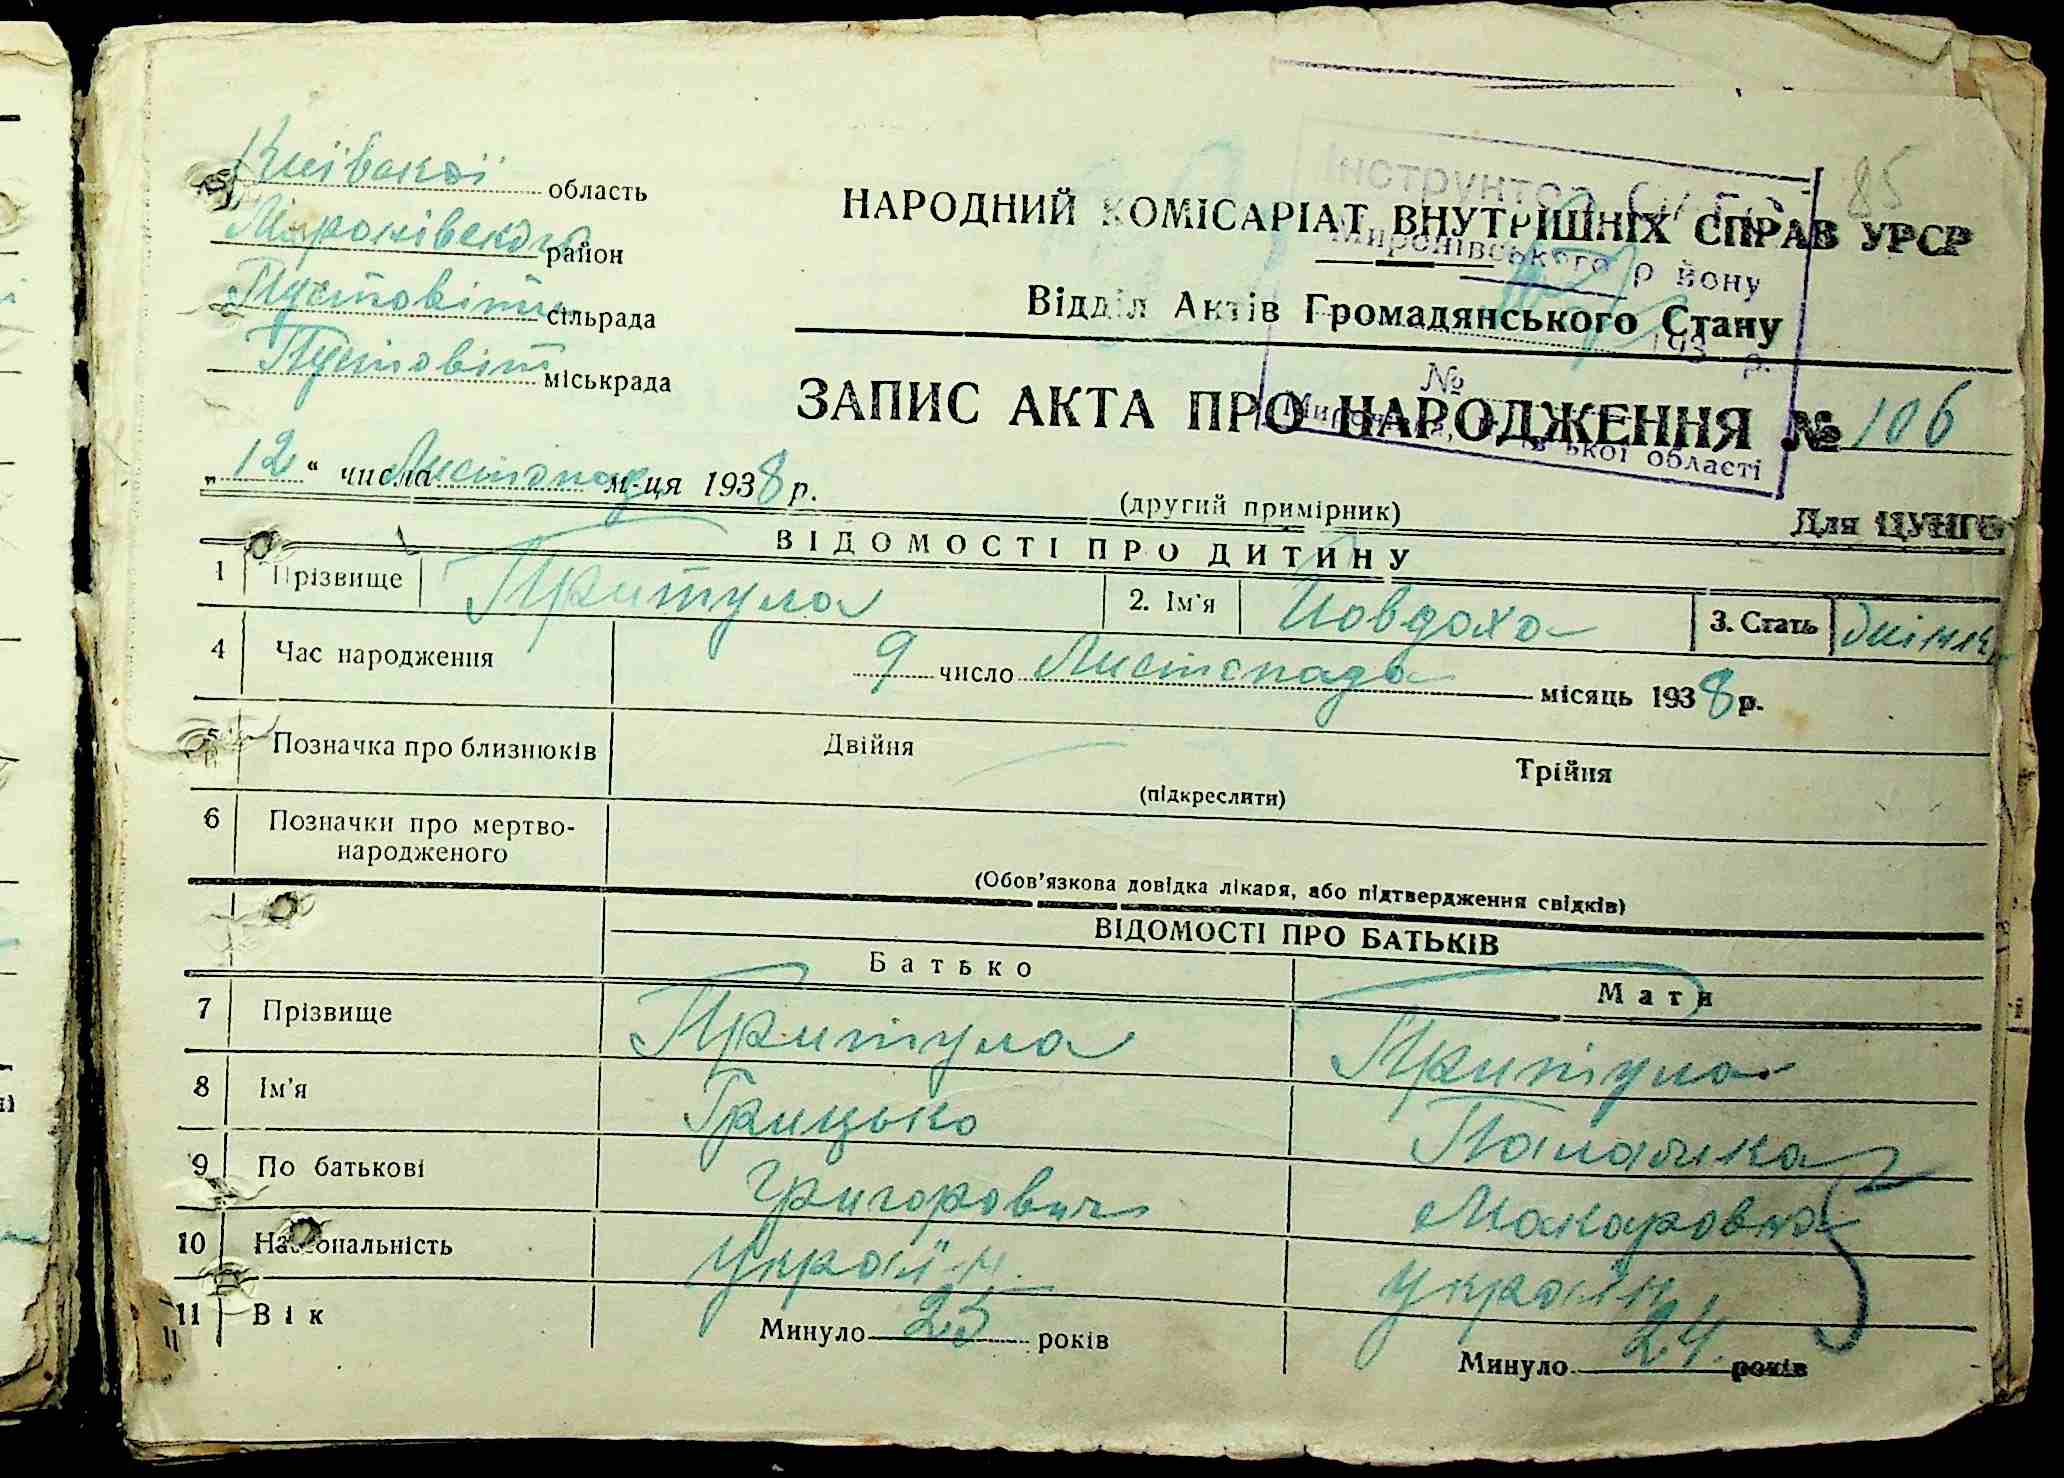 85
Київської область
Миронівского район
Пустовітс. сільрада
Пустовіт міськрада
Інструктор
Миронівського р йону
193 р.
№
кої області
НАРОДНИЙ КОМІСАРІАТ ВНУТРІШНІХ СПРАВ УРСР
Відділ Актів Громадянського Стану
ЗАПИС АКТА ПРО НАРОДЖЕННЯ № 106
„ 12 “ числа Листопада м-ця 1938 р.
(другий примірник)
Для ЦУНГО
ВІДОМОСТІ ПРО ДИТИНУ
1 Прізвище Притула 2. Ім'я Йовдоха 3. Стать
4 Час народження 9 число Листопада місяць 1938 р.
5 Позначка про близнюків Двійня Трійня
(підкреслити)
6 Позначки про мертво-
народженого
(Обов'язкова довідка лікаря, або підтвердження свідків)
ВІДОМОСТІ ПРО БАТЬКІВ
Батько Мати
7 Прізвище Притула Притула
8 Ім'я Грицько Палажка
9 По батькові Григорович Макаровна
10 Національність україн. україн.
11 Вік Минуло 25 років Минуло 24 років